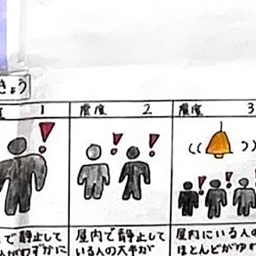 きょう
1
震度 2
震度 3
で静止して
屋内で静止して
いる人の大半が
屋内にいる人の
ほとんどがゆれ